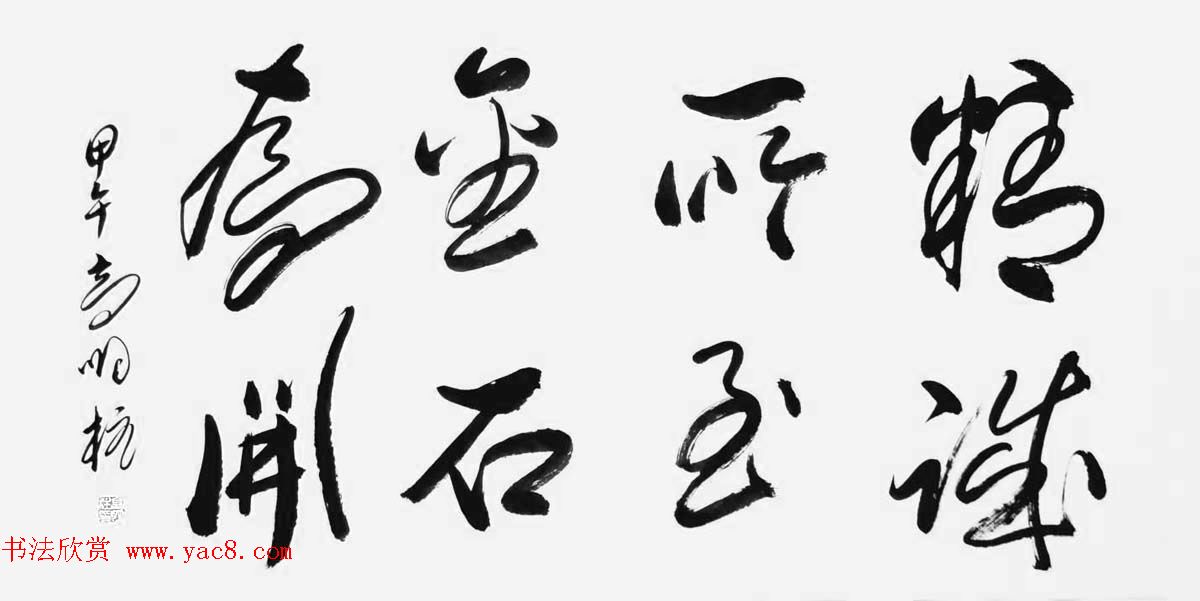 精誠
所至
金石
為開
甲午高明
书法欣赏 www.yac8.com